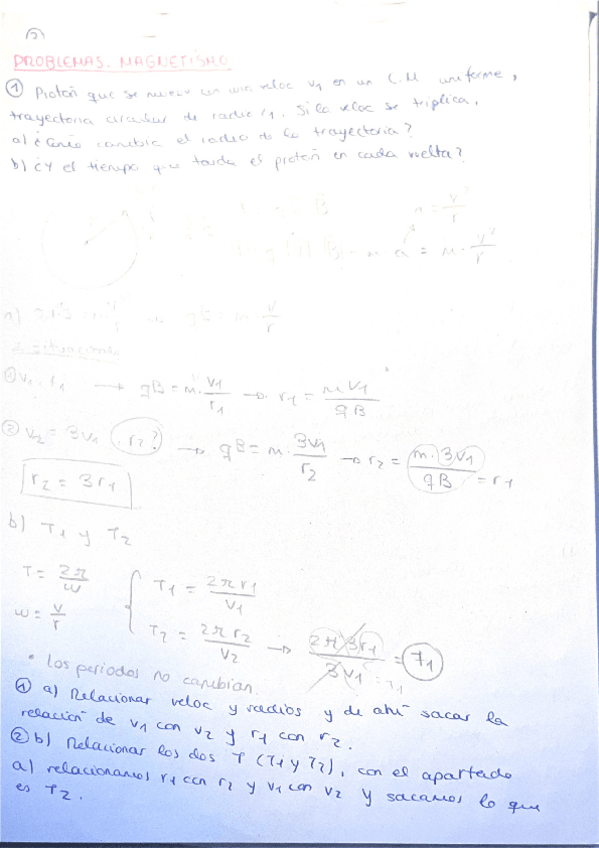 2
PROBLEMAS. MAGNETISMO
① Protón que se mueve con una veloc v1 en un C.M uniforme,
trayectoria circular de radio r1. Si la veloc se triplica,
a) ¿Cómo cambia el radio de la trayectoria?
b) ¿Y el tiempo que tarda el protón en cada vuelta?
a = v²/r
B = m · a = m · v²/r
qB = m · v/r
2 situaciones
① v1, r1 → qB = m · v1/r1 → r1 = mv1/qB
② v2 = 3v1 r2? → qB = m · 3v1/r2 → r2 = m·3v1/qB = r1
r2 = 3r1
b) T1 y T2
T = 2π/ω
ω = v/r
T1 = 2πr1/v1
T2 = 2πr2/v2 → 2π3r1/3v1 = T1
* Los periodos no cambian.
① a) Relacionar veloc y radios y de ahí sacar la
relación de v1 con v2 y r1 con r2.
② b) Relacionar los dos T (T1 y T2), con el apartado
a) relacionamos r1 con r2 y v1 con v2 y sacamos lo que
es T2.